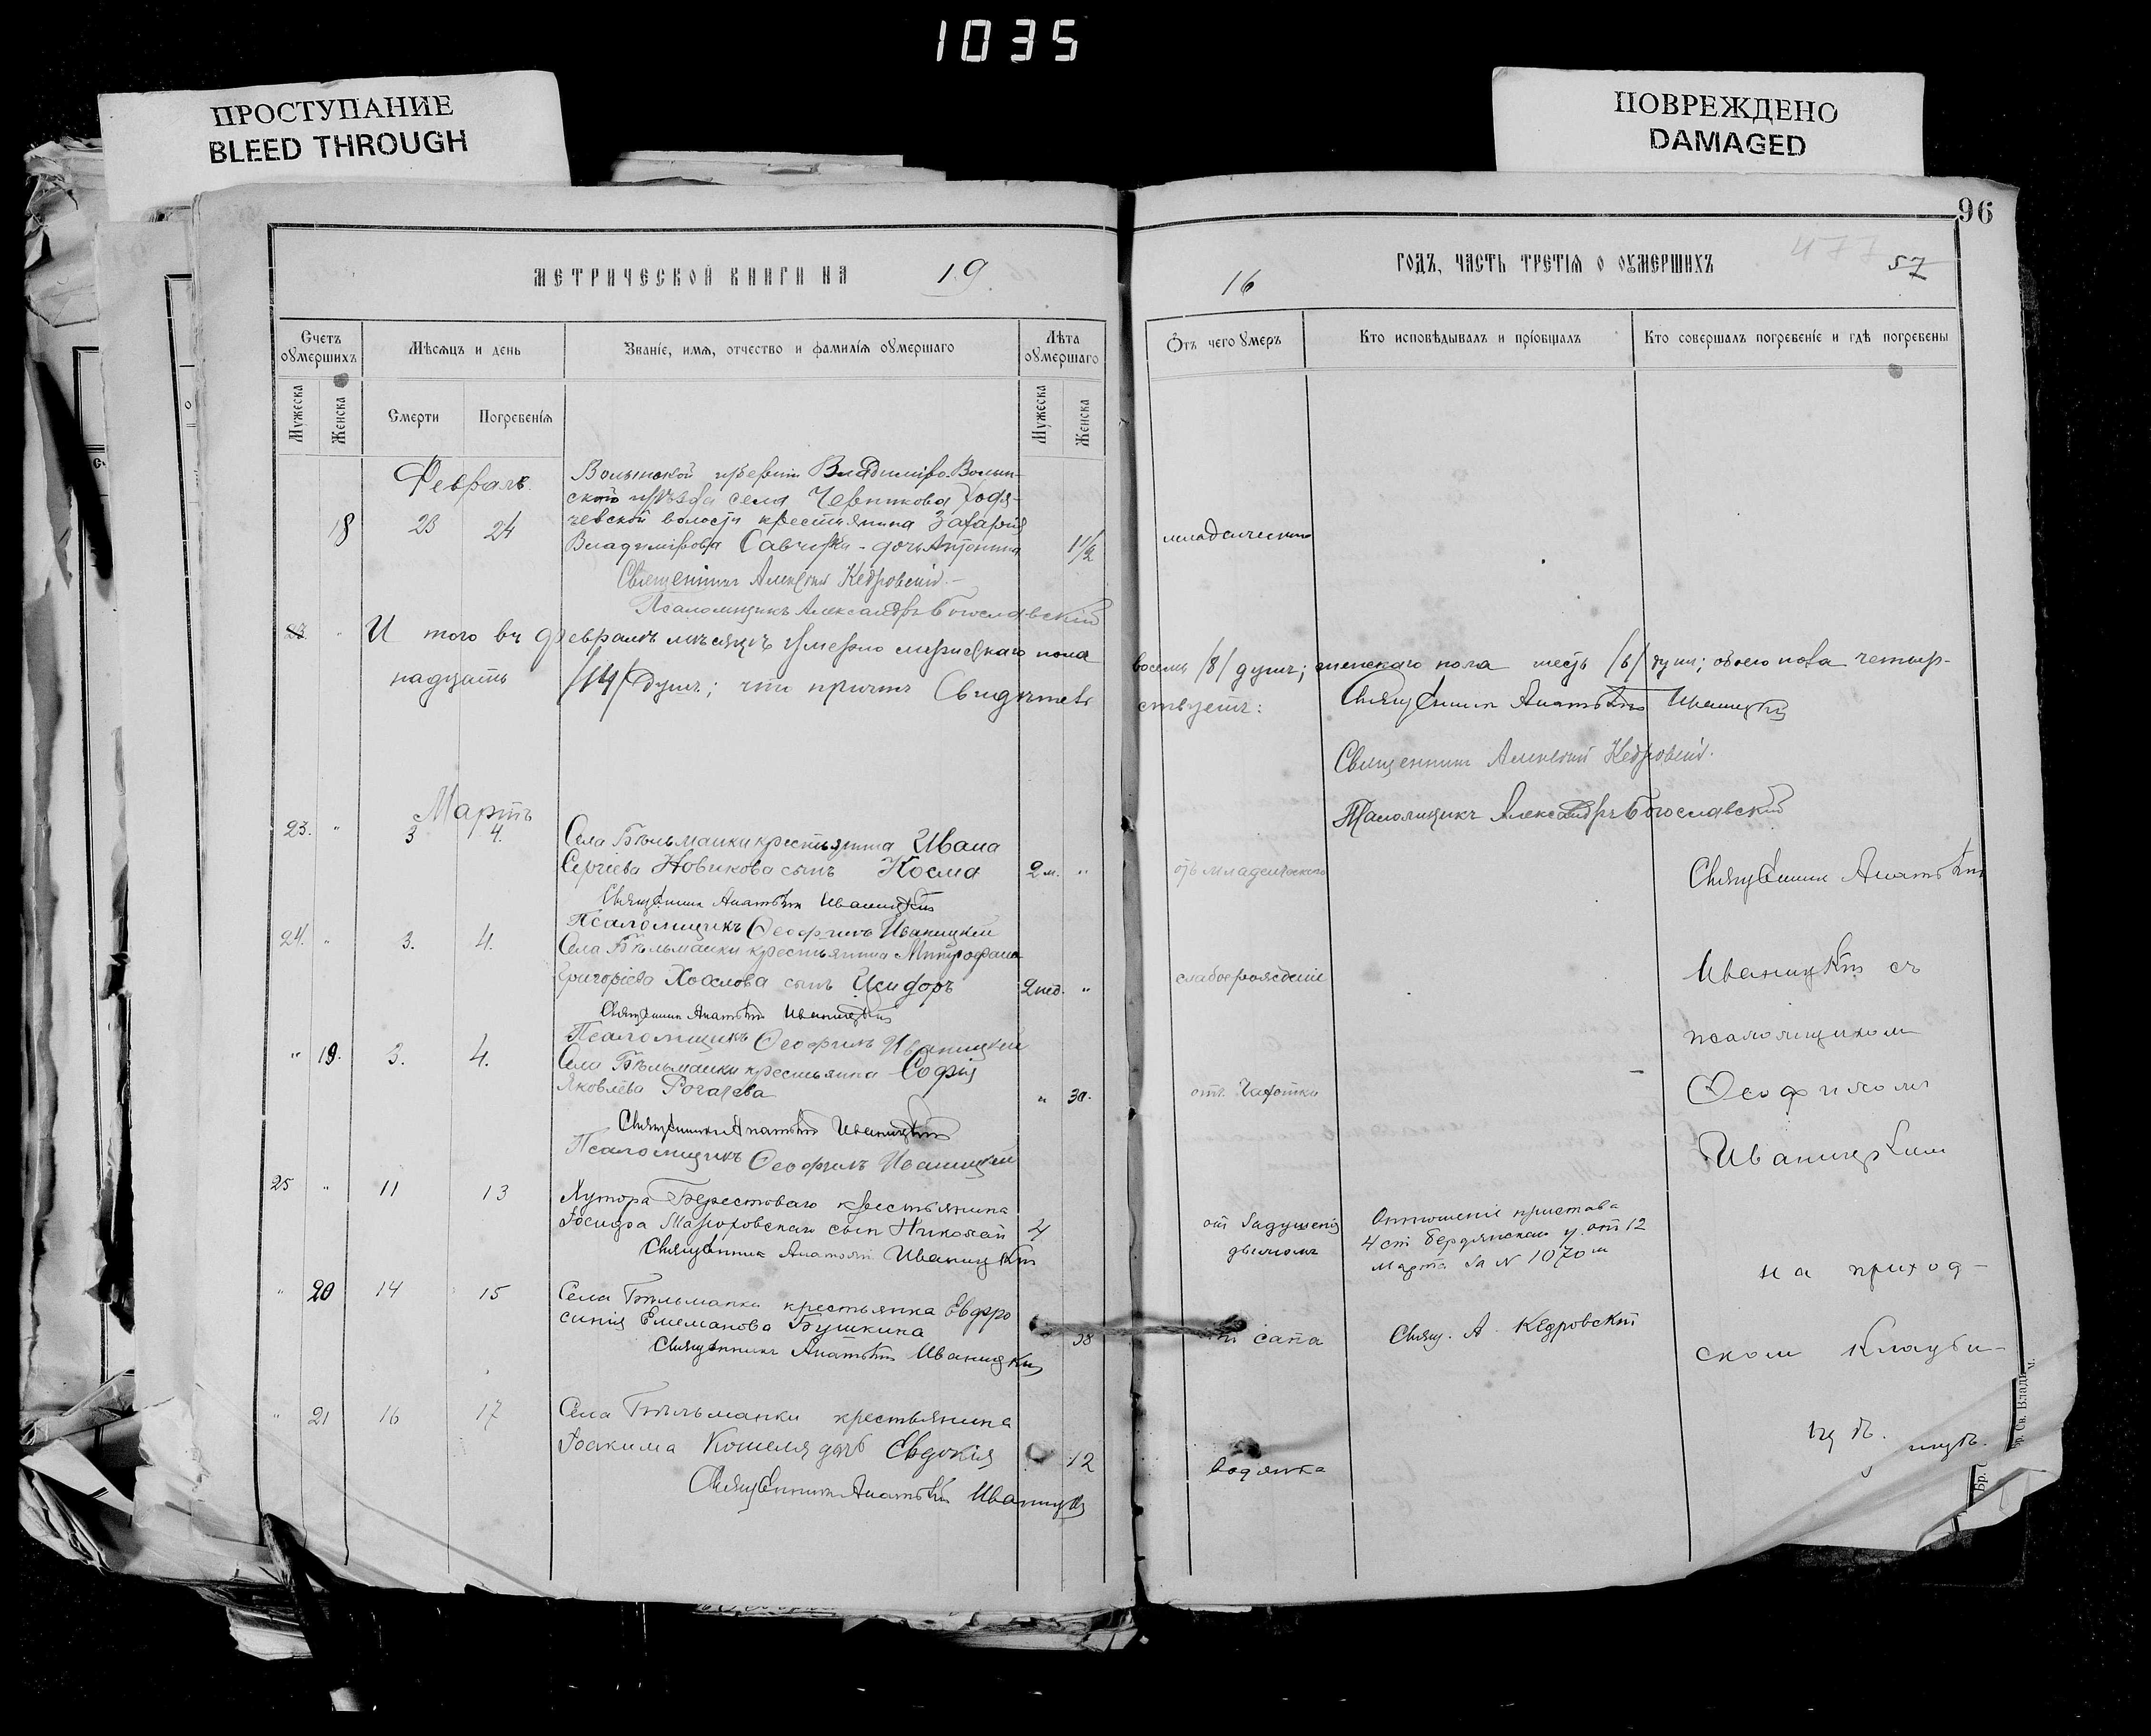 1035
ПРОСТУПАНИЕ
BLEED THROUGH
ПОВРЕЖДЕНО
DAMAGED
96
МЕТРИЧЕСКОЙ КНИГИ НА 19
16 ГОДЪ, ЧАСТЬ ТРЕТІЯ О ОУМЕРШИХЪ
57
Счетъ оумершихъ
Мѣсяцъ и день
Званіе, имя, отчество и фамилія оумершаго
Лѣта оумершаго
Отъ чего умеръ
Кто исповѣдывалъ и пріобщалъ
Кто совершалъ погребеніе и гдѣ погребены
Мужеска
Женска
Смерти
Погребенія
Мужеска
Женска
Февраль
Волынской губерніи Владиміро-Волын-
скаго уѣзда села
18 23 24
чевской волости крестьянина Захарія
Владимірова Савчука - дочь Антонина 1 1/2
младенческой
Священникъ Алексій Кедровскій
Псаломщикъ Александръ Богославскій
И того въ Февралѣ мѣсяцѣ умерло мужескаго пола
восемь /8/ душъ; женскаго пола шесть /6/ душъ; обоего пола четыр-
надцать /14/ душъ; что причтъ свидѣтель
ствуетъ:
Священникъ Анатолій Иваницкій
Священникъ Алексій Кедровскій.
Псаломщикъ Александръ Богославскій
Мартъ
23. " 3 4.
Села Бѣльманки крестьянина Ивана
Сергіева Новикова сынъ Косма 2 м. "
отъ младенческой
Священникъ Анатолій
Священникъ Анатолій Иваницкій
Псаломщикъ Ѳеофилъ Иваницкій
24. " 3. 4.
Села Бѣльманки крестьянина Митрофана
Григоріева Хохлова сынъ Исидоръ 2 нед. "
слабое рожденіе
Иваницкій съ
Священникъ Анатолій Иваницкій
Псаломщикъ Ѳеофилъ Иваницкій
псаломщикомъ
" 19. 3. 4.
Села Бѣльманки крестьянина Софія
Яковлева Рогачева " 30.
отъ Чахотки
Ѳеофиломъ
Священникъ Анатолій Иваницкій
Псаломщикъ Ѳеофилъ Иваницкій
Иваницкимъ
25 " 11 13
Хутора Берестоваго крестьянина
Іосифа сынъ Николай 4
отъ задушенія
дымомъ
Отношеніе пристава
4 ст Бердянскаго у. отъ 12
Марта за № 1070 м
Священникъ Анатолій Иваницкій
на приход-
" 20 14 15
Села Бѣльманки крестьянка Евфро
синія Бушкина 38
сапа
Свящ. А. Кедровскій
Священникъ Анатолій Иваницкій
скомъ кладби-
" 21 16 17
Села Бѣльманки крестьянина
Іоакима Кошеля дочь Евдокія 12
водянка
щѣ.
Священникъ Анатолій Иваницкій